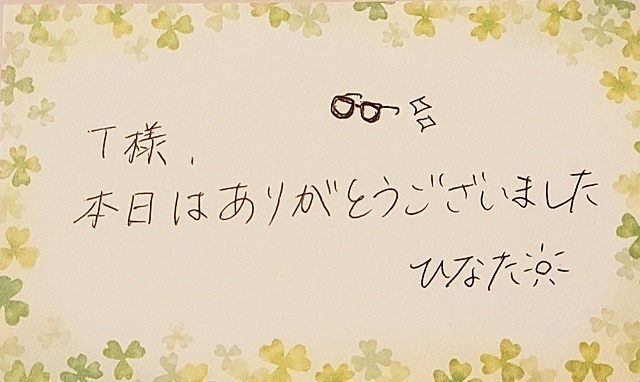 T様,
本日はありがとうございました
ひなた